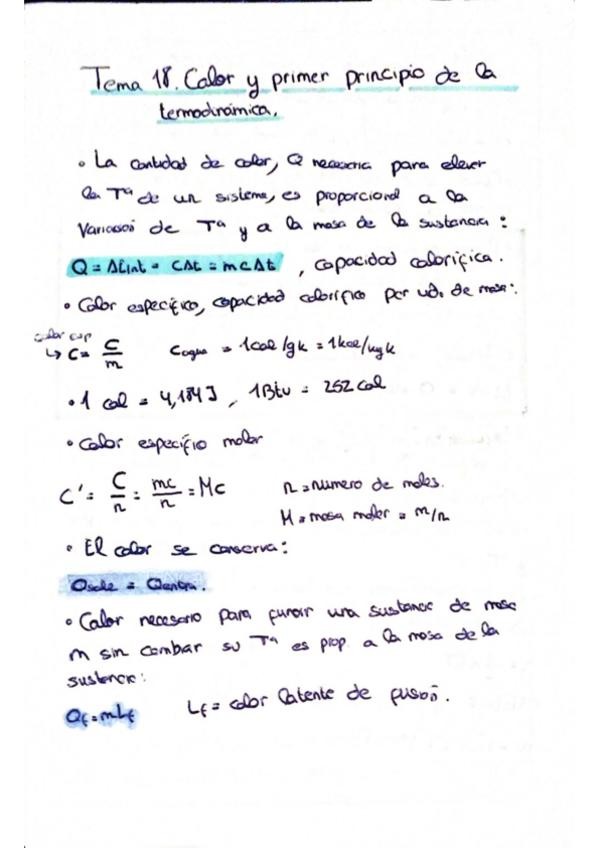 Tema 18. Calor y primer principio de la
termodinámica.
• La cantidad de calor, Q necesaria para elevar
la Tª de un sistema, es proporcional a la
Variación de Tª y a la masa de la sustancia:
Q = ΔEint = CΔt = mcΔt, capacidad calorífica.
• Calor específico, capacidad calorífica por ud. de masa:
calor esp
↳ C = C/m Cagua = 1cal/gk = 1kcal/kgk
• 1 cal = 4,184 J, 1Btu = 252 cal
• Calor específico molar
C' = C/n = mc/n = Mc n = número de moles.
M = masa molar = m/n
• El calor se conserva:
Qsale = Qentra.
• Calor necesario para fundir una sustancia de masa
m sin cambiar su Tª es prop. a la masa de la
sustancia:
Qf = mLf Lf = calor latente de fusión.